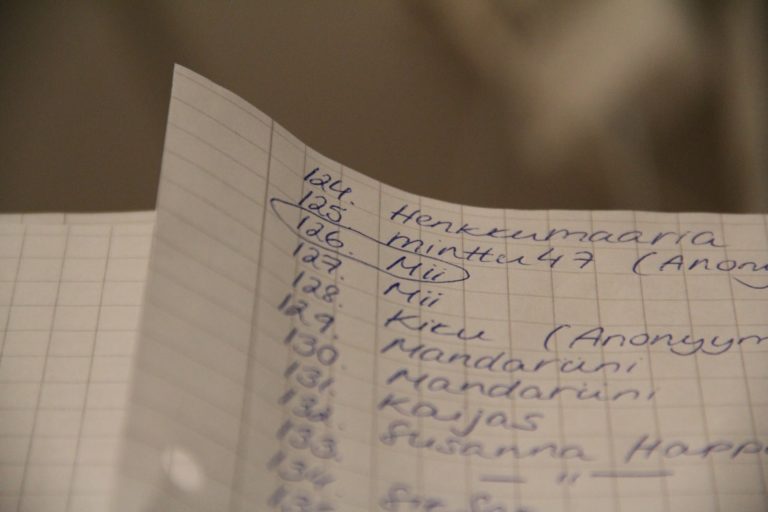 124. Henkkumaaria
125. minttu47 (Anony
126. Mii
127. Mii
128. Kiku (Anonyym
129. Mandariini
130. Mandariini
131. Kaijas
132. Susanna Happ
133. — " —
134.